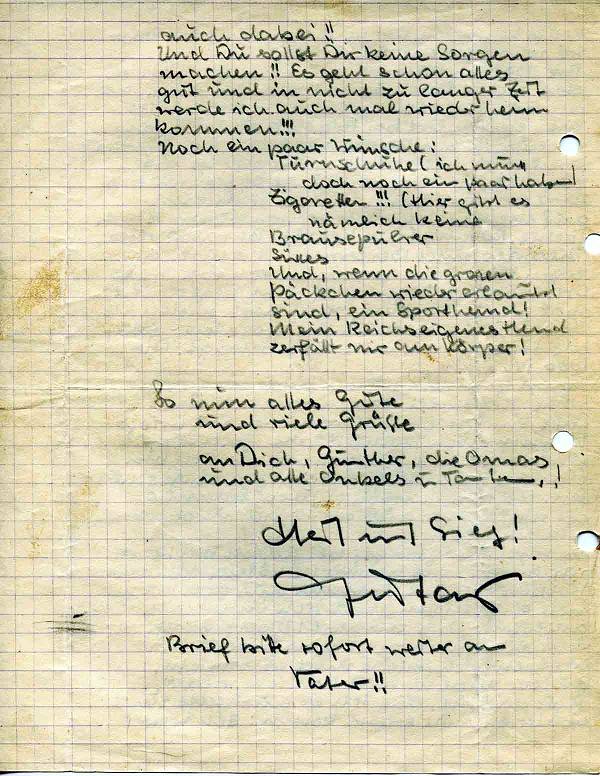 auch dabei!!
Und Du sollst Dir keine Sorgen
machen!! Es geht schon alles
gut und in nicht zu langer Zeit
werde ich auch mal wieder heim
kommen!!!
Noch ein paar Wünsche:
Turnschuhe (ich muss
doch noch ein paar haben)
Zigaretten!!! (Hier gibt es
nämlich keine
Brausepulver
Süsses
Und, wenn die grossen
Päckchen wieder erlaubt
sind, ein Sporthemd!
Mein Reichseigenes Hemd
zerfällt mir am Körper!
So nun alles Gute
und viele Grüße
an Dich, Günther, die Omas
und alle Onkels u Tanten,!
Heil und Sieg!
Gustav
Brief bitte sofort weiter an
Vater!!